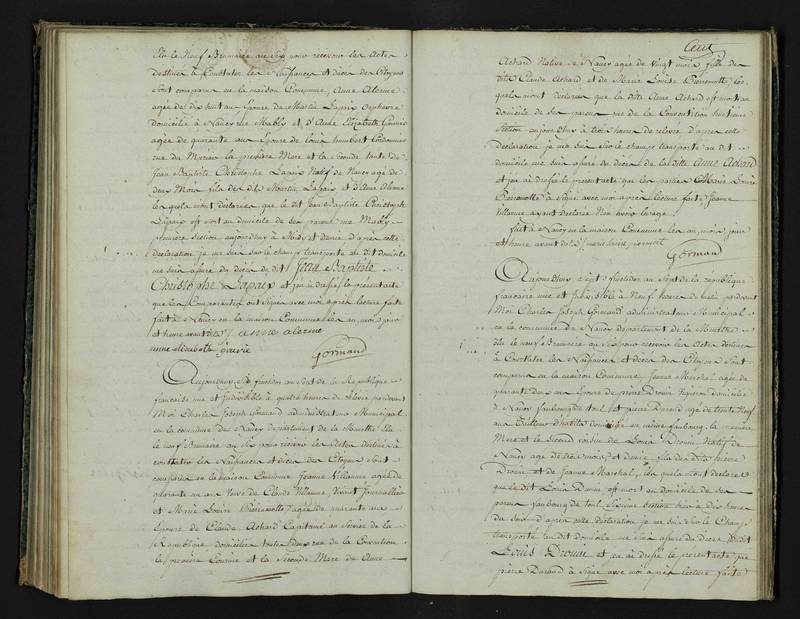 Elu le Neuf Brumaire an Six pour recevoir les Actes
destinés à Constater les Naissances et décès des Citoyens
Sont comparus en la maison Commune, Anne Alerme
agée de dix huit ans Epouse de Martin Lapaix Orphevre
domicilié à Nancy rue Mably et d'Anne Elizabeth
agée de quarante ans Epouse de Louis humbert Cordonnier
rue du la première Mere et la Seconde tante de
Jean Baptiste Christophe Lapaix Natif de Nancy agé de
deux Mois fils dudit Martin Lapaix et d'Anne Alerme
lesquels m'ont déclarés que le dit Jean Baptiste Christophe
Lapaix est mort au domicile de ses pareus rue Mably
première Section aujourdhuy à Midy et demie d'après cette
déclaration je me suis sur le champ transporté au dit domicile
me suis assuré du décès du dit Jean Baptiste
Christophe Lapaix et j'en ai dressé le présent acte
que les Comparantes ont Signés avec moi après lecture faite
fait à Nancy en la maison Commune les an, mois, jour
et heure avant dits anne alerme
anne elisabeth
Gormand
Aujourdhuy Six fructidor an Sept de la Republique
française une et Indivisible à quatre heures de rélevé pardevant
Moi Charles Joseph Gormand administrateur Municipal
en la commune de Nancy departement de la Meurthe Elu
le neuf Brumaire an Six pour recevoir les Actes destinés à
constater les Naissances et décès des Citoyens Sont
comparus en la Maison Commune Jeanne Villaume agée de
quarante un ans Veuve de Claude Villaume Vivant Journallier
et Marie Louise Pierremotte agée de quarante ans
Epouse de Claude Achard Capitaine au Service de la
Republique domiciliées toutes deux rue de la Convention
la première Cousine et la Seconde Mere de Anne
Achard Native de Nancy agée de Vingt mois, fille du
dit Claude Achard et de Marie Louise Pierremotte, les
quels m'ont déclarés que la ditte Anne Achard est morte au
domicile de ses pareus rue de la Convention huitieme
Section aujourdhuy à trois heures de rélevé d'après cette
déclaration je me suis sur le champ transporté au dit
domicile me suis assuré du décès de la ditte Anne Achard
et j'en ai dressé le présent acte que la partie Marie Louise
Pierremotte à Signé avec moi après lecture faite Jeanne
Villaume ayant déclarée Non avoir l'usage
fait à Nancy en la maison Commune les an, mois, jour
et heure avant dits marie louise pierremotte
Gormand
Aujourdhuy Sept fructidor an Sept de la république
francaise une et Indivisible à Neuf heures du matin pardevant
Moi Charles Joseph Gormand administrateur Municipal
en la commune de Nancy departement de la Meurthe
Elu le neuf Brumaire an Six pour recevoir les Actes destinés
à Constater les Naissances et décès des Citoyens Sont
comparus en la maison Commune, Jeanne Marchal agée de
quarante deux ans Epouse de pierre Drouin Vigneron domicilié
à Nancy faubourg de toul, et pierre Durand agé de trente Neuf
ans Tailleur d'habits domicilié au même faubourg, la première
Mere et le Second voisin de Louis Drouin Natif de
Nancy agé de trois mois et demie, fils des dits pierre
Drouin et de Jeanne Marchal, lesquels m'ont déclarés
que le dit Louis Drouin est mort au domicile de ses
pareus faubourg de toul Sixieme Section hier à dix heures
du Soir d'après cette déclaration je me suis sur le Champ
transporté au dit domicile me suis assuré du décès du dit
Louis Drouin et j'en ai dressé le présent acte que
pierre Durand à Signé avec moi après lecture faite